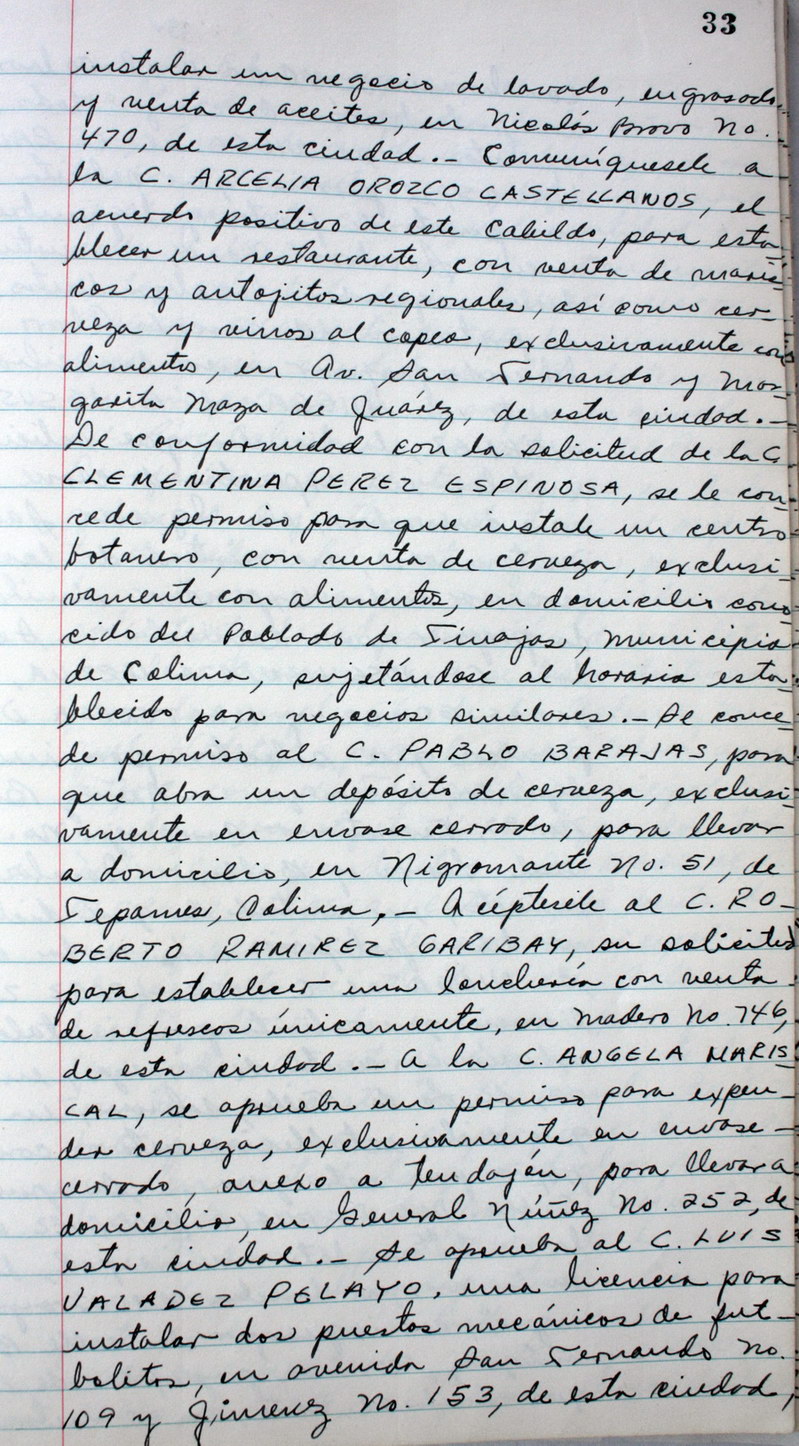 33
instalar un negocio de lavado, engrasado
y venta de aceites, en Nicolás Bravo No.
470, de esta ciudad.- Comuníquesele a
la C. ARCELIA OROZCO CASTELLANOS, el
acuerdo positivo de este Cabildo, para esta-
blecer un restaurante, con venta de maris-
cos y antojitos regionales, así como cer-
veza y vinos al copeo, exclusivamente con
alimentos, en Av. San Fernando y Mar-
garita Maza de Juárez, de esta ciudad.-
De conformidad con la solicitud de la C.
CLEMENTINA PEREZ ESPINOSA, se le con-
cede permiso para que instale un centro
botanero, con venta de cerveza, exclusi-
vamente con alimentos, en domicilio cono-
cido del Poblado de Tinajas, Municipio
de Colima, sujetándose al horario esta-
blecido para negocios similares.- Se conce-
de permiso al C. PABLO BARAJAS, para
que abra un depósito de cerveza, exclusi-
vamente en envase cerrado, para llevar
a domicilio, en Nigromante No. 51, de
Tepames, Colima,.- Acéptesele al C. RO-
BERTO RAMIREZ GARIBAY, su solicitud
para establecer una lonchería con venta
de refrescos únicamente, en Madero No. 746,
de esta ciudad.- A la C. ANGELA MARIS
CAL, se aprueba un permiso para expen-
der cerveza, exclusivamente en envase-
cerrado, anexo a tendajón, para llevar a
domicilio, en General Núñez No. 252, de
esta ciudad.- Se aprueba al C. LUIS
VALADEZ PELAYO, una licencia para
instalar dos puestos mecánicos de fut-
bolitos, en avenida San Fernando No.
109 y Jimenez No. 153, de esta ciudad,